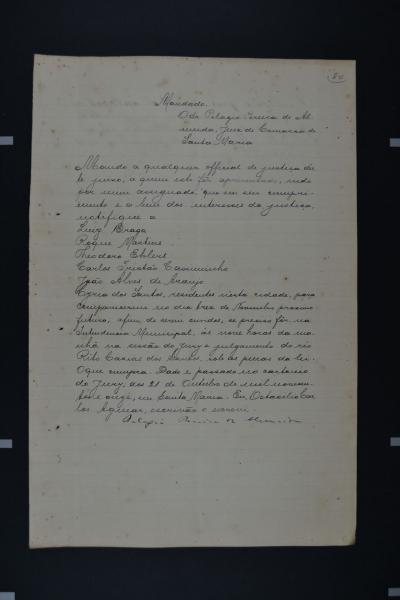 Mandado.
O dr. Pelagio Pereira de Al-
meida, Juiz de Comarca de
Santa Maria
Mando a qualquer official de justiça des-
te juizo, a quem este fôr apresentado, indo
por mim assignado, que em seu cumpri-
mento e a bem dos interesses da justiça,
notifique a
Luiz Braga
Roque Martins
Theodoro Ehlers
Carlos Tristão
João Alves de Araujo
Cyrio dos Santos, residentes nesta cidade, para
comparecerem no dia tres de Novembro proximo
futuro, afim de serem ouvidos, se preciso fôr, na
Intendencia Municipal, ás nove horas da ma-
nhã na sessão do Jury e julgamento do réo
Rito dos Santos, sob as penas da lei.
O que cumpra. Dado e passado no cartorio
do Jury, aos 21 de Outubro de mil novecen-
tos e onze, em Santa Maria. Eu, Octacilio Car-
los Aguiar, escrivão o escrevi.
Pelagio Pereira de Almeida